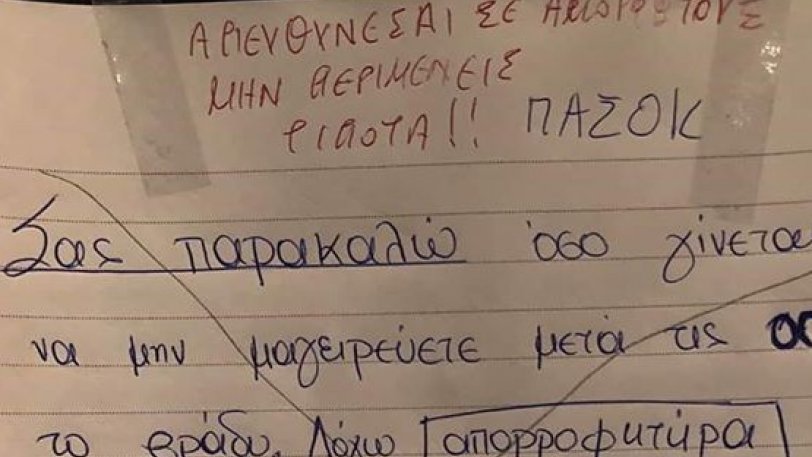 ΑΠΕΥΘΥΝΕΣΑΙ ΣΕ
ΜΗΝ ΠΕΡΙΜΕΝΕΙΣ
ΤΙΠΟΤΑ!! ΠΑΣΟΚ
Σας παρακαλώ όσο γίνεται
να μην μαγειρεύετε μετά τις
το βράδυ. Λόχω απορροφητήρα